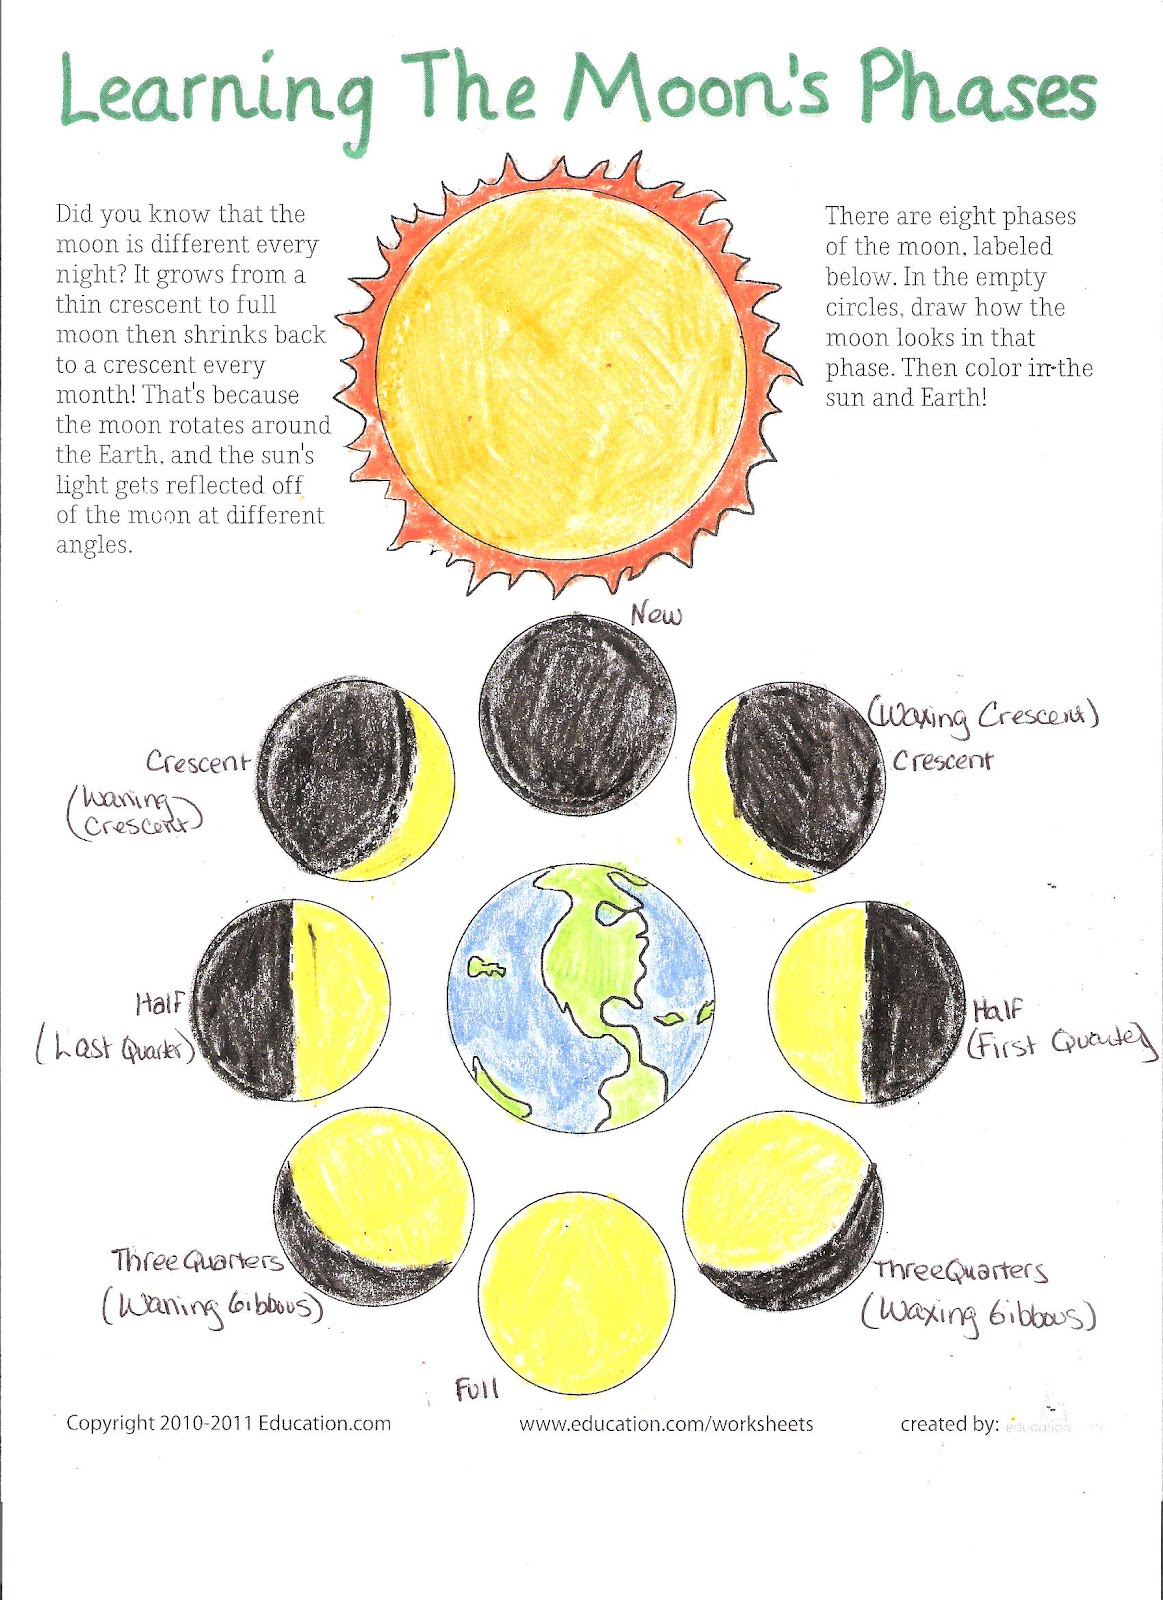 Learning The Moon's Phases
Did you know that the
moon is different every
night? It grows from a
thin crescent to full
moon then shrinks back
to a crescent every
month! That's because
the moon rotates around
the Earth, and the sun's
light gets reflected off
of the moon at different
angles.
There are eight phases
of the moon, labeled
below. In the empty
circles, draw how the
moon looks in that
phase. Then color in the
sun and Earth!
New
(Waxing Crescent)
Crescent
Crescent
(Waning
Crescent)
Half
(Last Quarter)
Half
(First Quarter)
Three Quarters
(Waning Gibbous)
Three Quarters
(Waxing Gibbous)
Full
Copyright 2010-2011 Education.com
www.education.com/worksheets
created by: education